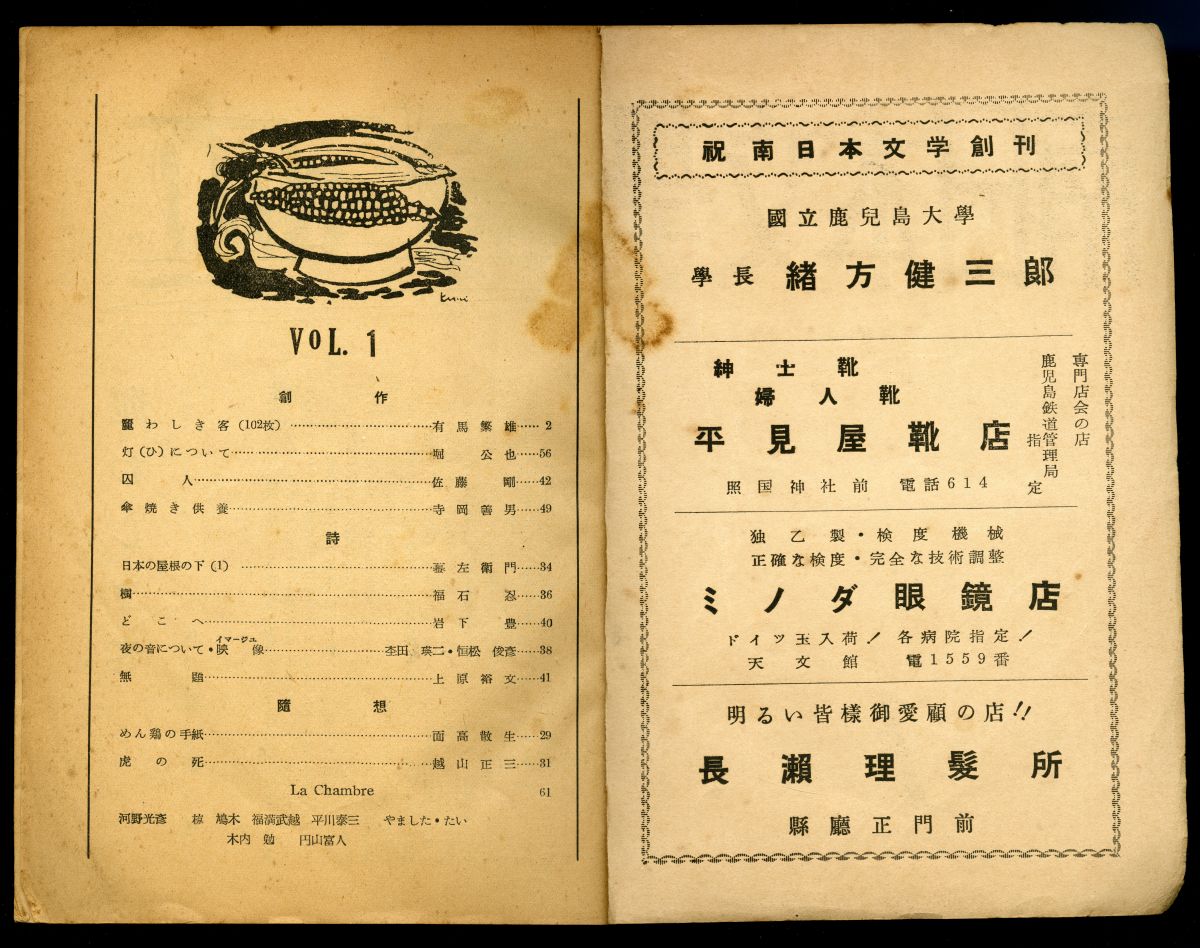 VOL. 1
創作
麗わしき客(102枚)…有馬繁雄…2
灯(ひ)について…堀公也…56
囚人…佐藤剛…42
傘焼き供養…寺岡善男…49
詩
日本の屋根の下(1)…左衛門…34
…福石忍…36
どこへ…岩下豊…40
夜の音について・映像…田瑛二・恒松俊彦…38
イマージュ
無題…上原裕文…41
隨想
めん鶏の手紙…面高散生…29
虎の死…越山正三…31
La Chambre 61
河野光彦 椋鳩木 福満武越 平川泰三 やました・たい
木内勉 円山富人
祝南日本文学創刊
國立鹿兒島大學
學長 緒方健三郎
紳士靴
婦人靴
平見屋靴店
照国神社前 電話614
専門店会の店
鹿児島鉄道管理局
指定
独乙製・検度機械
正確な検度・完全な技術調整
ミノダ眼鏡店
ドイツ玉入荷! 各病院指定!
天文館 電1559番
明るい皆様御愛顧の店!!
長瀨理髮所
縣廳正門前